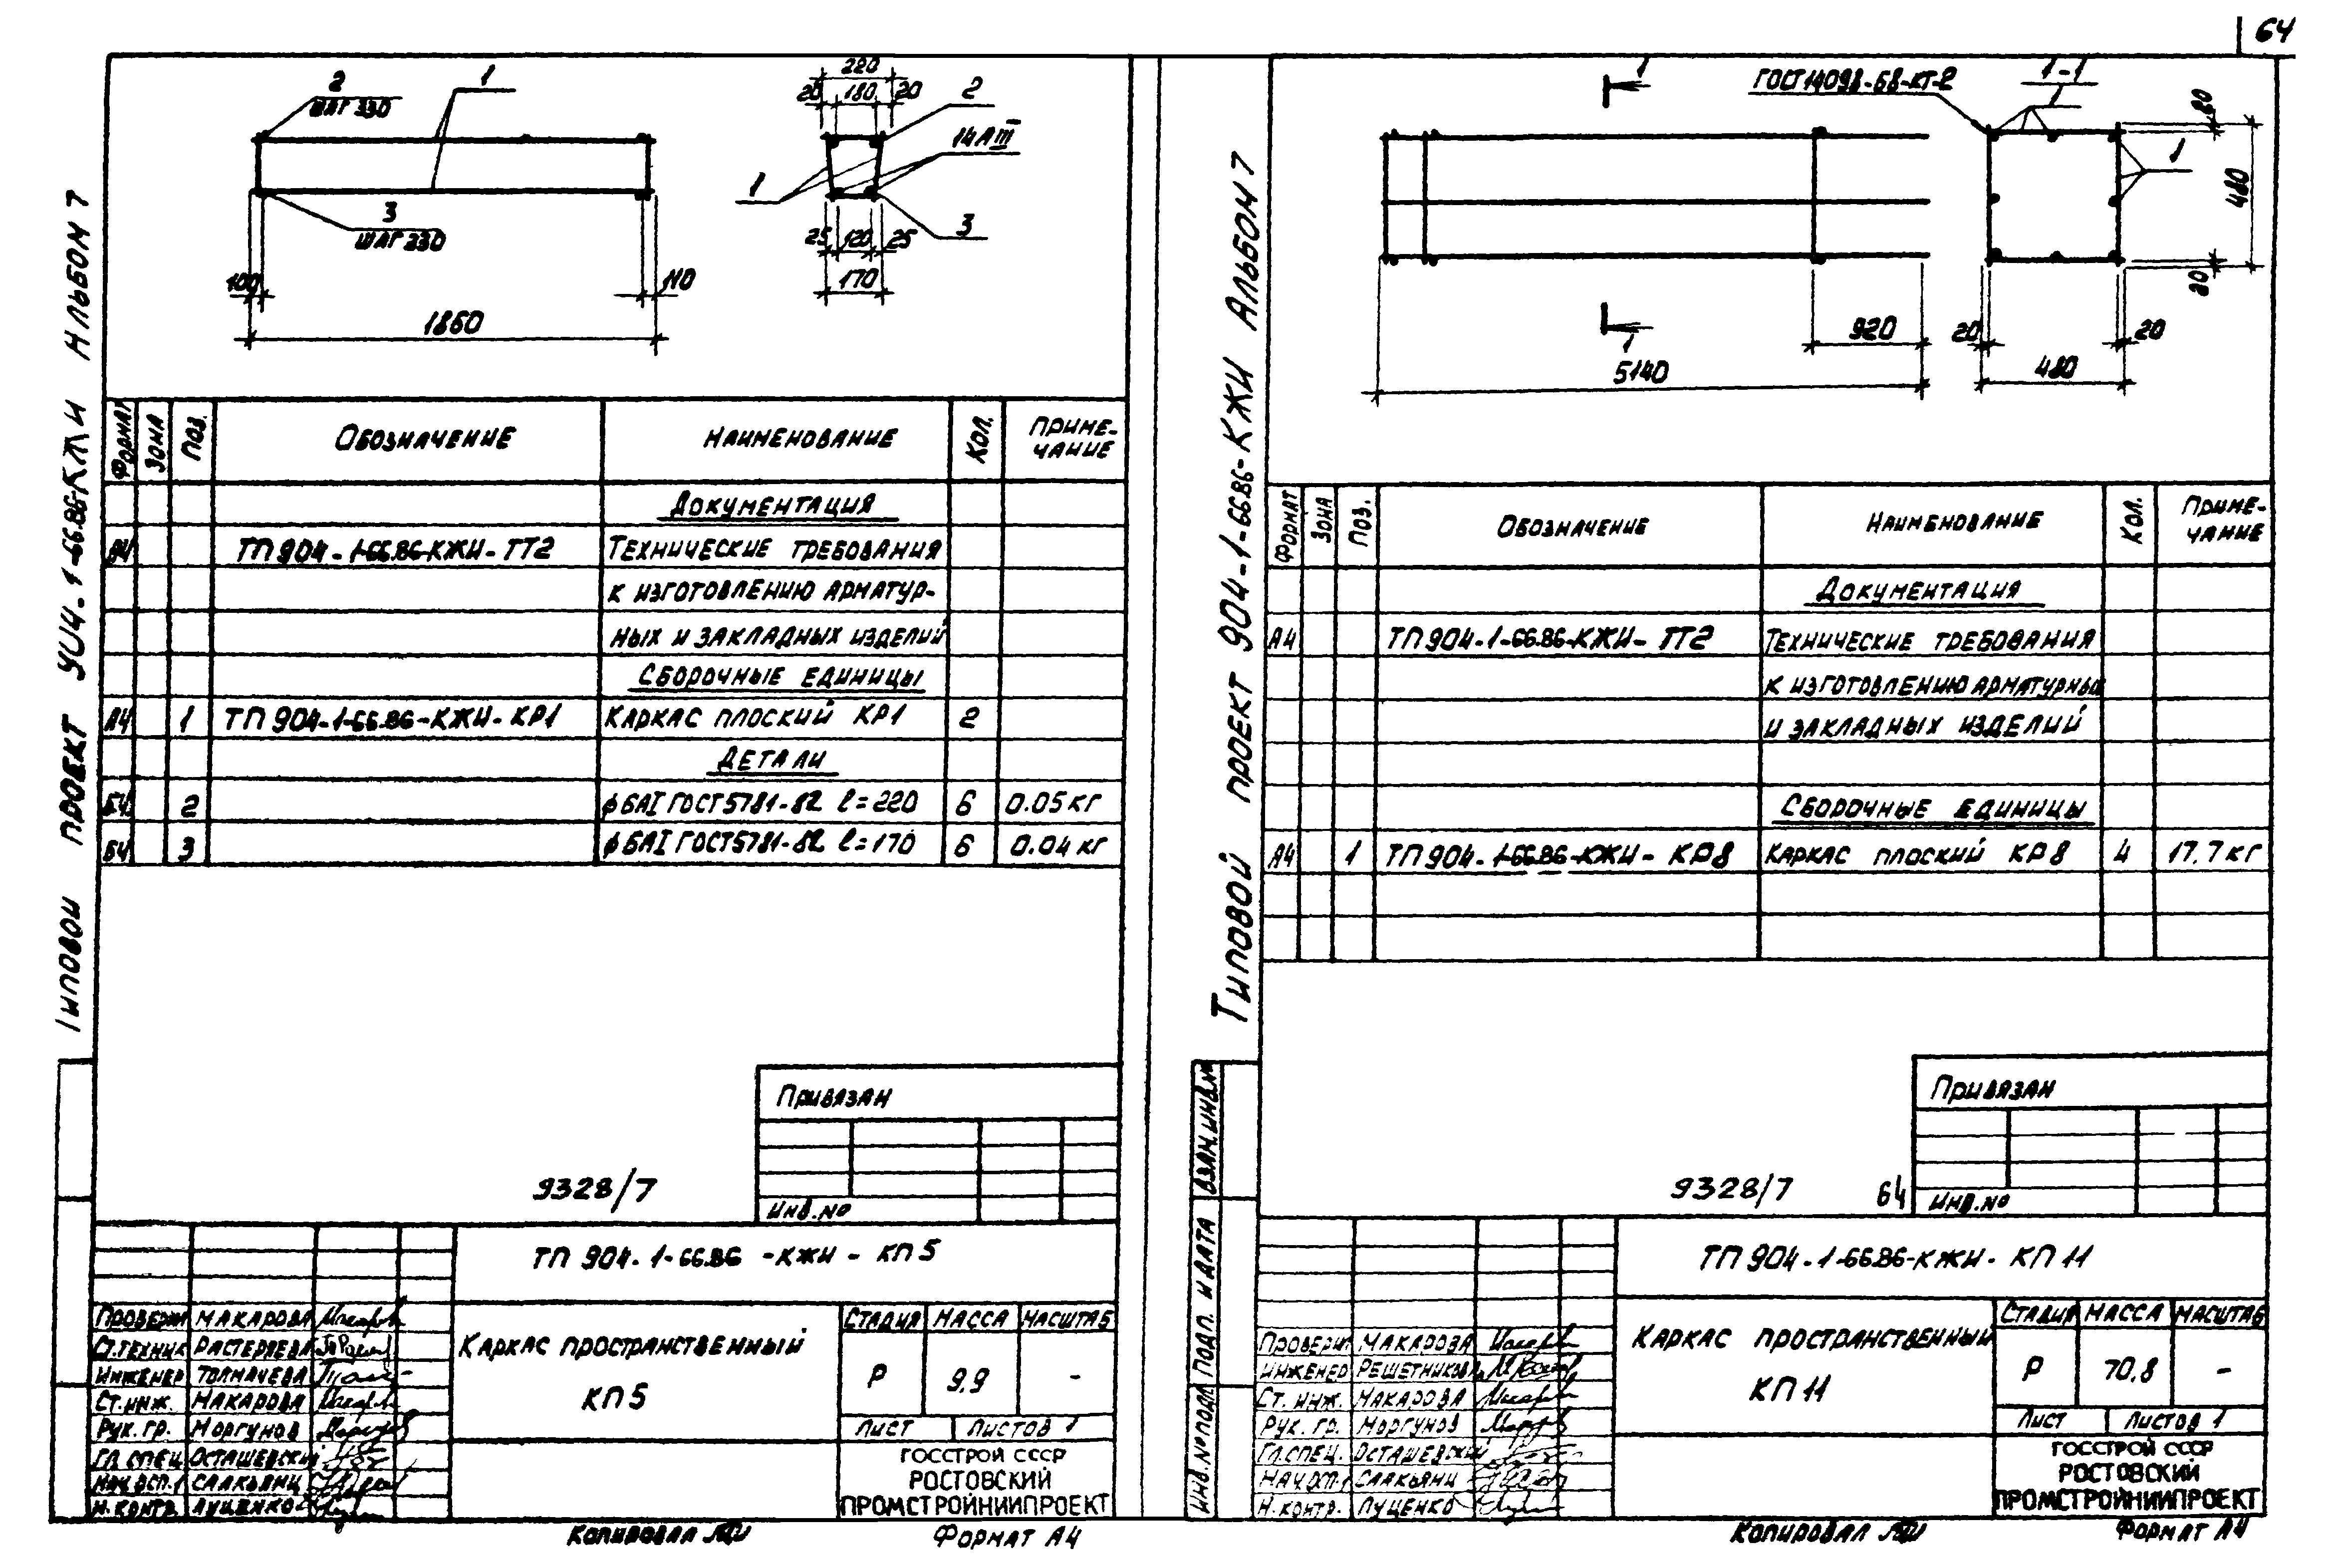 64
2
ШАГ 330
1
220
20 180 20
2
14АIII
1
3
ШАГ 230
25 120 25
3
100
110
170
1860
ТИПОВОЙ ПРОЕКТ 904-1-66.86-КЖИ АЛЬБОМ 7
ФОРМАТ ЗОНА ПОЗ. ОБОЗНАЧЕНИЕ НАИМЕНОВАНИЕ КОЛ. ПРИМЕ-
ЧАНИЕ
ДОКУМЕНТАЦИЯ
А4 ТП 904-1-66.86-КЖИ-ТТ2 ТЕХНИЧЕСКИЕ ТРЕБОВАНИЯ
К ИЗГОТОВЛЕНИЮ АРМАТУР-
НЫХ И ЗАКЛАДНЫХ ИЗДЕЛИЙ
СБОРОЧНЫЕ ЕДИНИЦЫ
А4 1 ТП 904-1-66.86-КЖИ-КР1 КАРКАС ПЛОСКИЙ КР1 2
ДЕТАЛИ
Б4 2 ф6АI ГОСТ 5781-82 ℓ=220 6 0.05 кг
Б4 3 ф6АI ГОСТ 5781-82 ℓ=170 6 0.04 кг
ПРИВЯЗАН
9328/7
ИНВ.№
ТП 904-1-66.86-КЖИ-КП5
ПРОВЕРИЛ МАКАРОВА
СТ.ТЕХНИК РАСТЕРЯЕВА
ИНЖЕНЕР ТОЛМАЧЕВА
СТ.ИНЖ. МАКАРОВА
РУК.ГР. МОРГУНОВ
ГЛ.СПЕЦ ОСТАШЕВСКИЙ
СААКЬЯНЦ
Н.КОНТР. ЛУЦЕНКО
КАРКАС ПРОСТРАНСТВЕННЫЙ
КП5
СТАДИЯ МАССА МАСШТАБ
Р 9,9 -
ЛИСТ ЛИСТОВ 1
ГОССТРОЙ СССР
РОСТОВСКИЙ
ПРОМСТРОЙНИИПРОЕКТ
КОПИРОВАЛ
ФОРМАТ А4
1
ГОСТ 14098-68-КТ-2
1-1
1
20
480
1
20
1
920
5140
20
20
480
ТИПОВОЙ ПРОЕКТ 904-1-66.86-КЖИ АЛЬБОМ 7
ФОРМАТ ЗОНА ПОЗ. ОБОЗНАЧЕНИЕ НАИМЕНОВАНИЕ КОЛ. ПРИМЕ-
ЧАНИЕ
ДОКУМЕНТАЦИЯ
А4 ТП 904-1-66.86-КЖИ-ТТ2 ТЕХНИЧЕСКИЕ ТРЕБОВАНИЯ
К ИЗГОТОВЛЕНИЮ АРМАТУРНЫХ
И ЗАКЛАДНЫХ ИЗДЕЛИЙ
СБОРОЧНЫЕ ЕДИНИЦЫ
А4 1 ТП 904-1-66.86-КЖИ-КР8 КАРКАС ПЛОСКИЙ КР8 4 17.7 кг
ПРИВЯЗАН
9328/7
64
ИНВ.№
ВЗАМ.ИНВ.№
ПОДП. И ДАТА
ИНВ.№ ПОДЛ
ТП 904-1-66.86-КЖИ-КП 11
ПРОВЕРИЛ МАКАРОВА
ИНЖЕНЕР РЕШЕТНИКОВА
СТ. ИНЖ. МАКАРОВА
РУК. ГР. МОРГУНОВ
ГЛ.СПЕЦ. ОСТАШЕВСКИЙ
СААКЬЯНЦ
Н.КОНТР. ЛУЦЕНКО
КАРКАС ПРОСТРАНСТВЕННЫЙ
КП 11
СТАДИЯ МАССА МАСШТАБ
Р 70,8 -
ЛИСТ ЛИСТОВ 1
ГОССТРОЙ СССР
РОСТОВСКИЙ
ПРОМСТРОЙНИИПРОЕКТ
КОПИРОВАЛ
ФОРМАТ А4